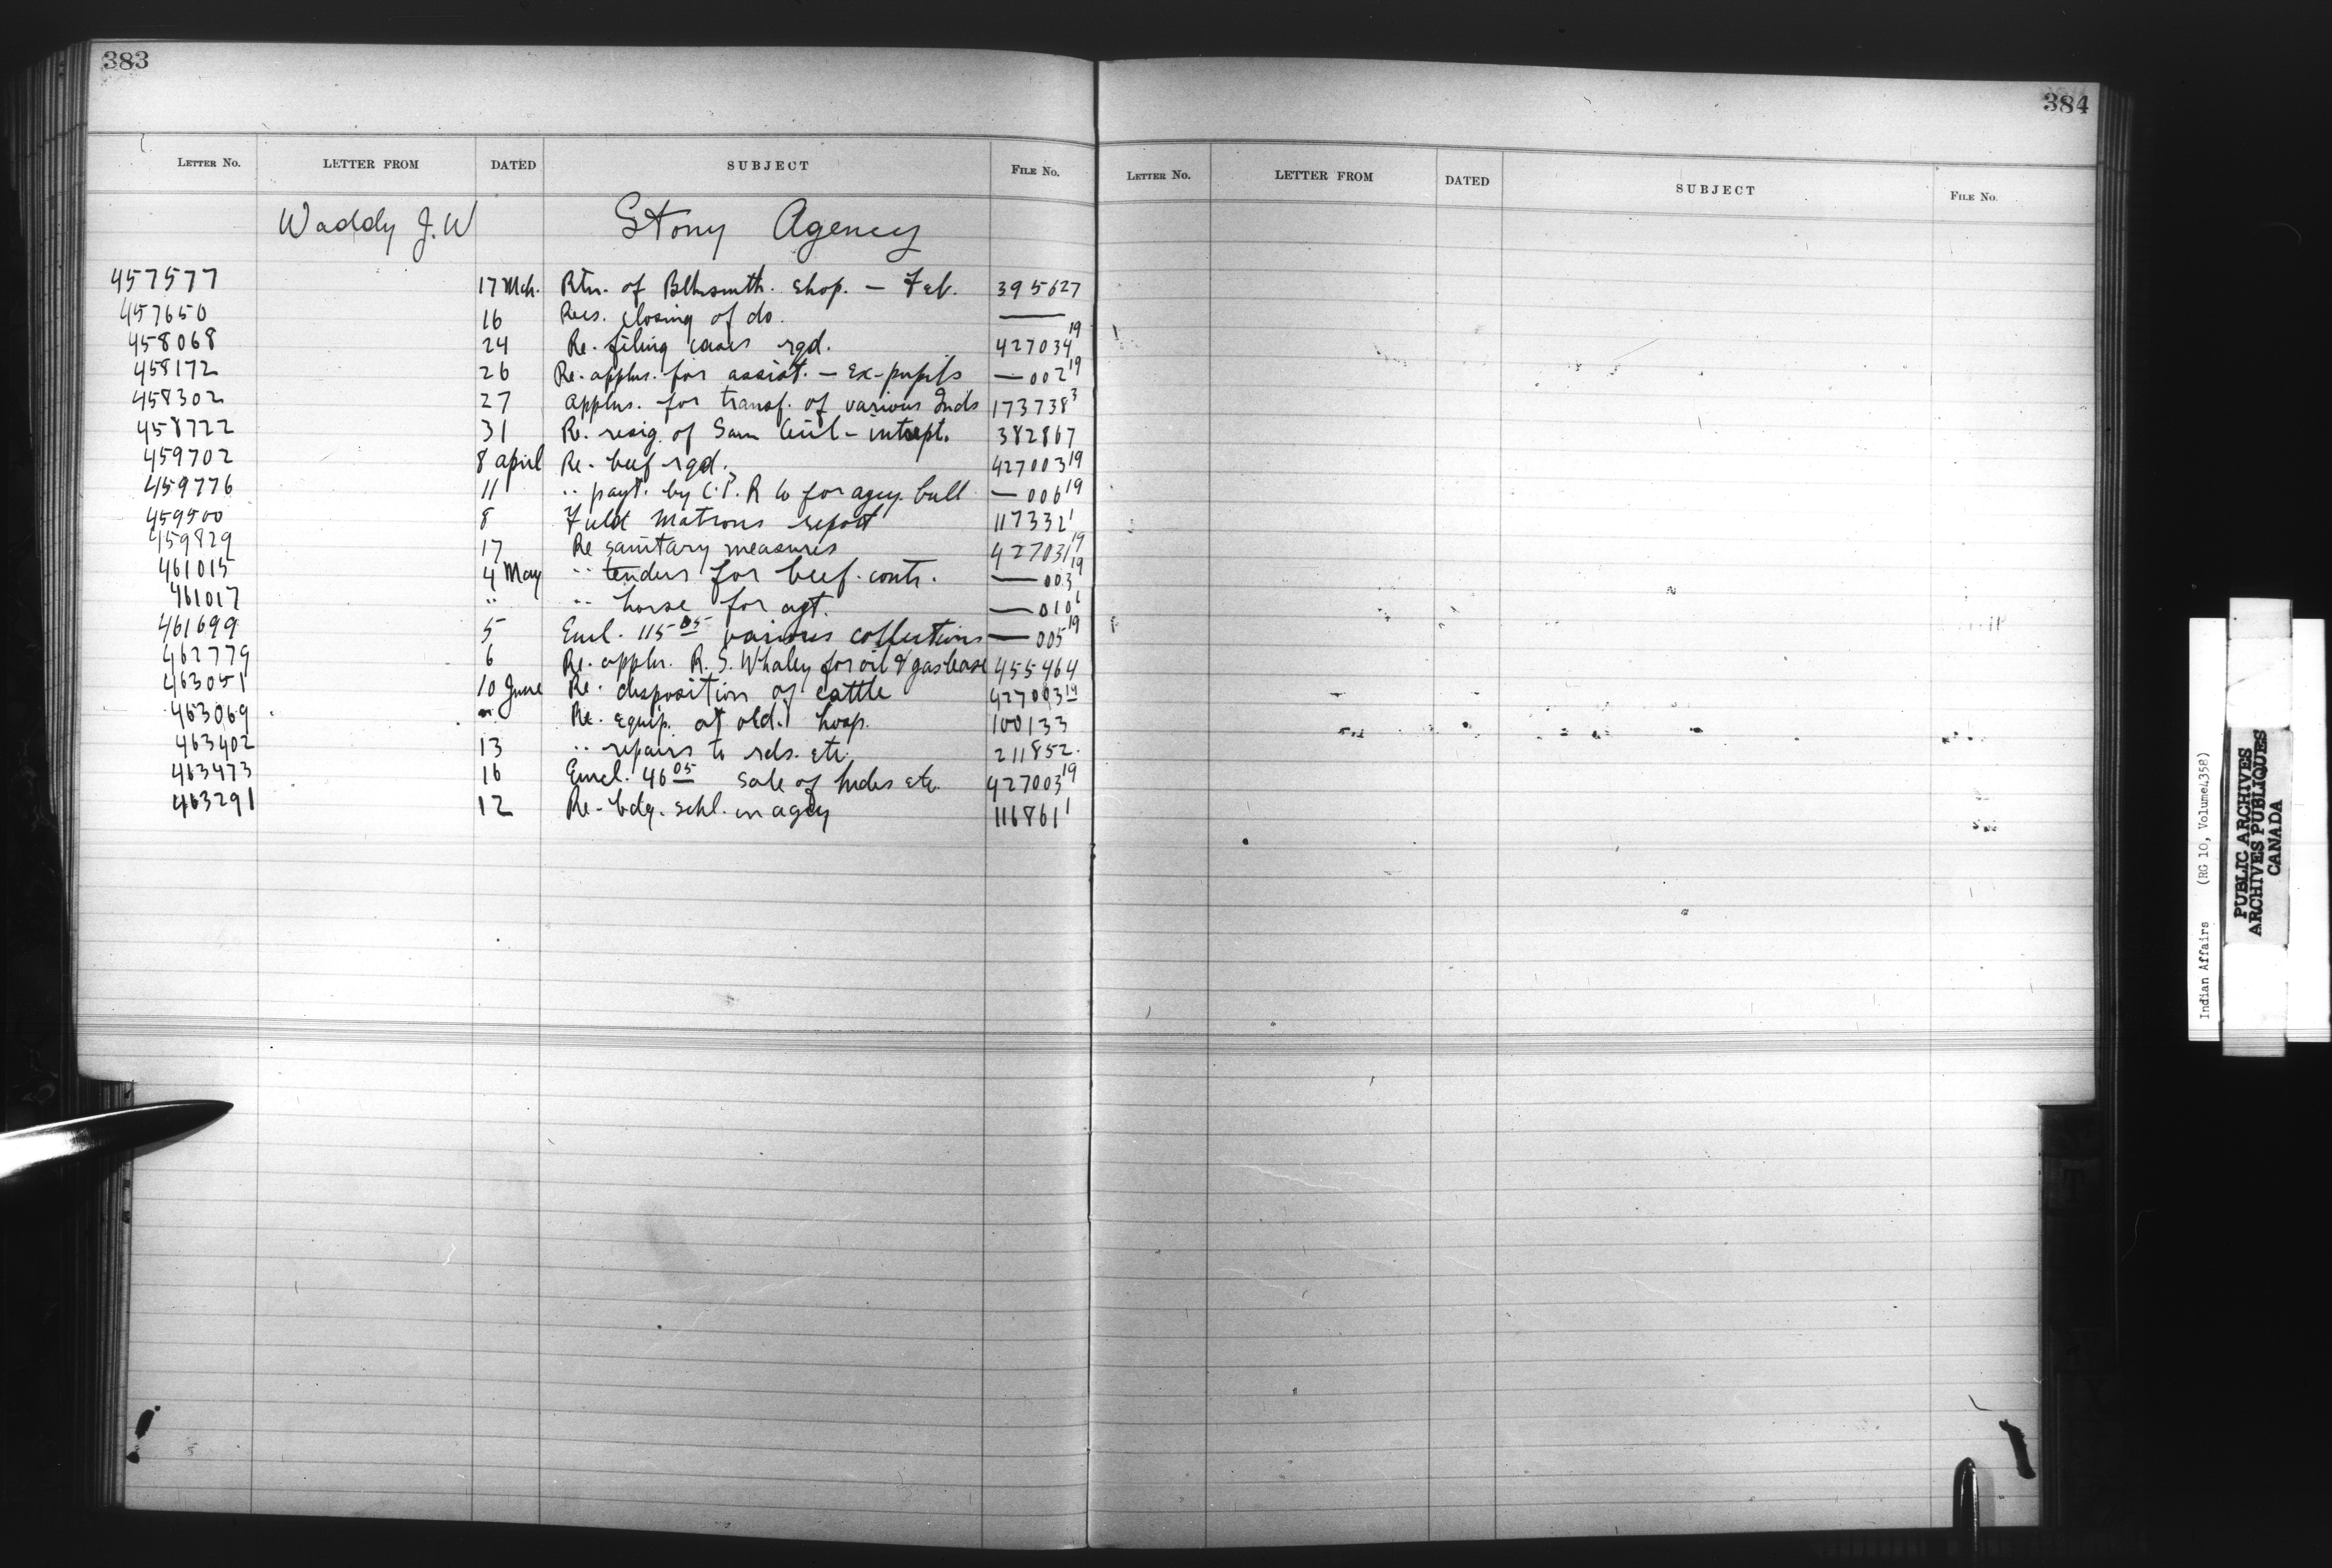 383
LETTER NO. LETTER FROM DATED SUBJECT FILE NO.
Waddy J. W Stony Agency
457577 17 Mch. Rtn. of Blksmth. shop. — Feb. 395627
457650 16 Recs. closing of do. ——
458068 24 Re. filing cases rqd. 427034¹⁹
458172 26 Re. applns. for assist. — Ex-pupils — 002¹⁹
458302 27 applns. for transf. of various Inds 173738³
458722 31 Re. resig. of Sam Cecil - intrept. 382867
459702 8 April Re. beef rqd. 427003¹⁹
459776 11 " payt. by C.P. R Co for agcy. bull — 006¹⁹
459500 8 Field Matrons report 117332¹
459829 17 Re sanitary measures 427031¹⁹
461015 4 May " tenders for beef. contr. — 003¹⁹
461017 " " horse for agt. — 010¹
461699 5 Encl. 115 05 various collections — 005¹⁹
462779 6 Re. appln. R. S. Whaley for oil & gas lease 455464
463051 10 June Re. disposition of cattle 427003¹⁹
463069 " Re. equip. at old. hosp. 100133
463402 13 " repairs to rds. etc. 211852.
463473 16 Encl. 46 05 Sale of hides etc. 427003¹⁹
463291 12 Re. bdg. schl. on agcy 116861¹
384
LETTER NO. LETTER FROM DATED SUBJECT FILE NO.
Indian Affairs (RG 10, Volume 4358)
PUBLIC ARCHIVES
ARCHIVES PUBLIQUES
CANADA